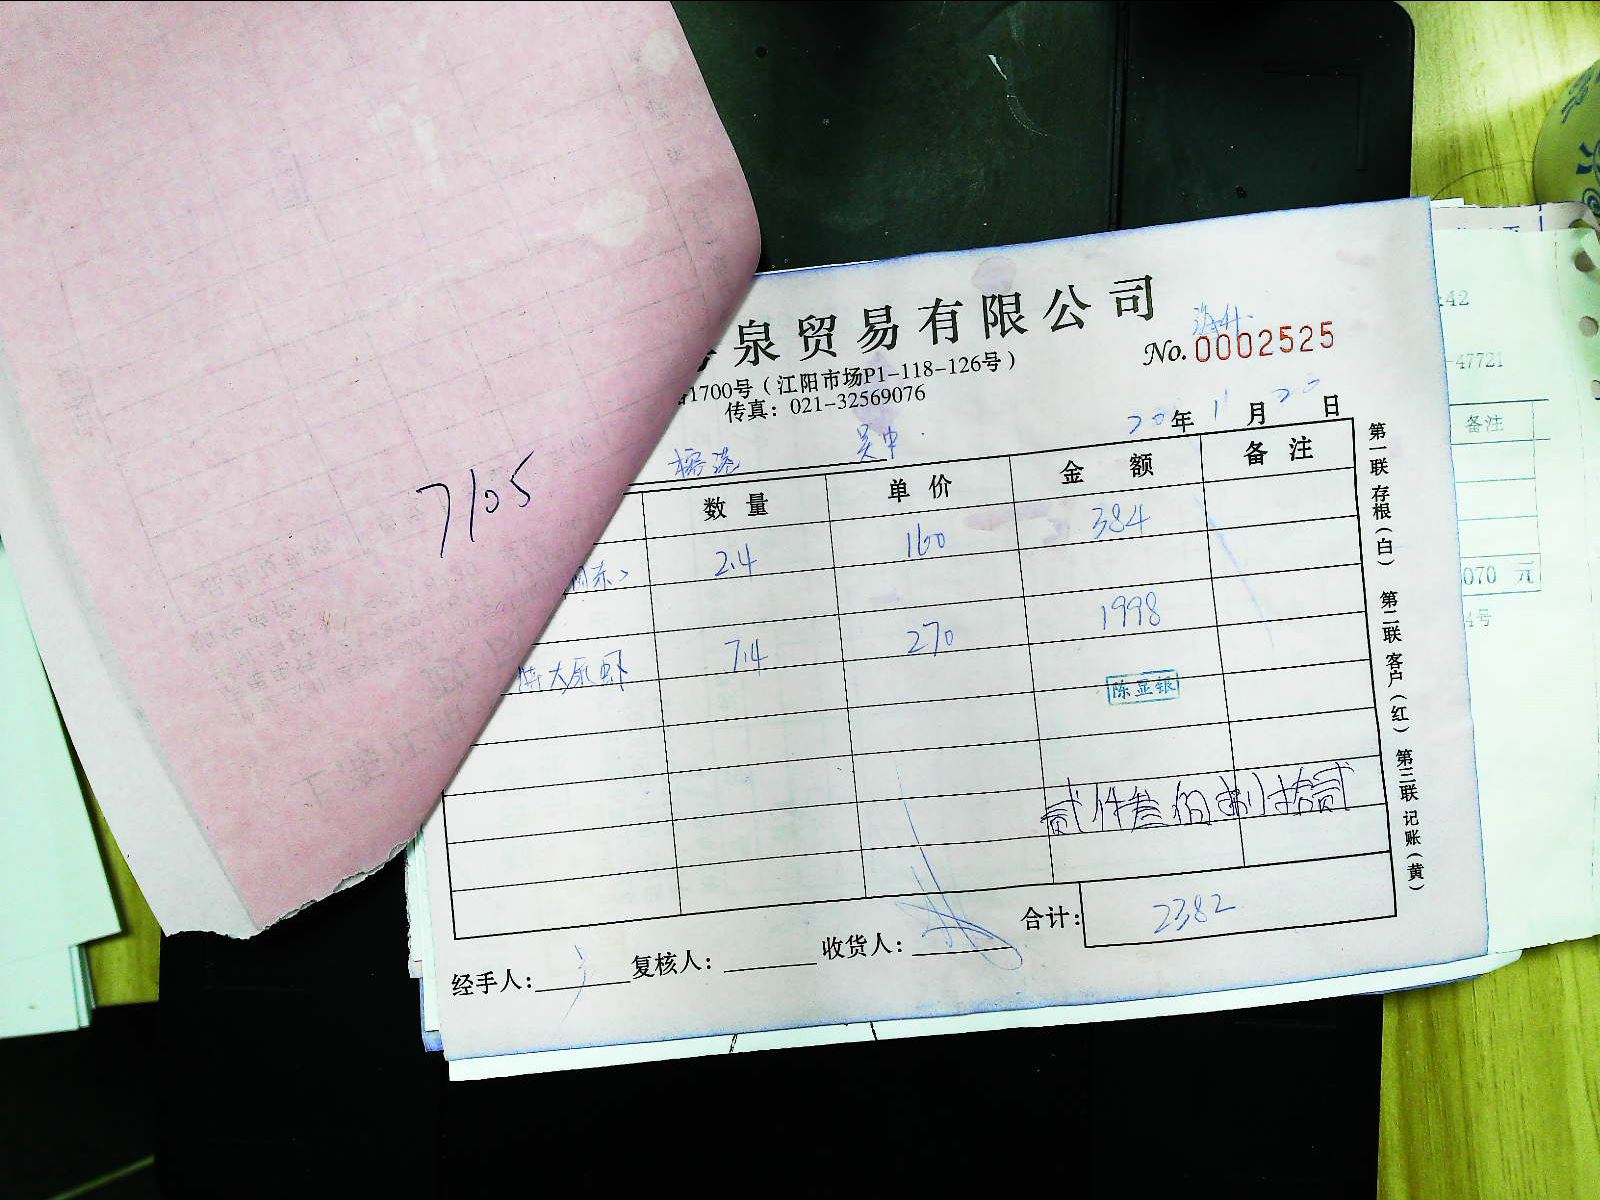 泉贸易有限公司
No. 0002525
1700号(江阳市场P1-118-126号)
传真: 021-32569076
20年 11月 20日
吴中
数量 单价 金额 备注
2.4 160 384
特大原虾 7.4 270 1998
陈显银
贰仟叁佰捌拾贰
合计: 2382
经手人: 复核人: 收货人:
第一联存根(白) 第二联客户(红) 第三联记账(黄)
7105
:42
-47721
备注
070 元
4号